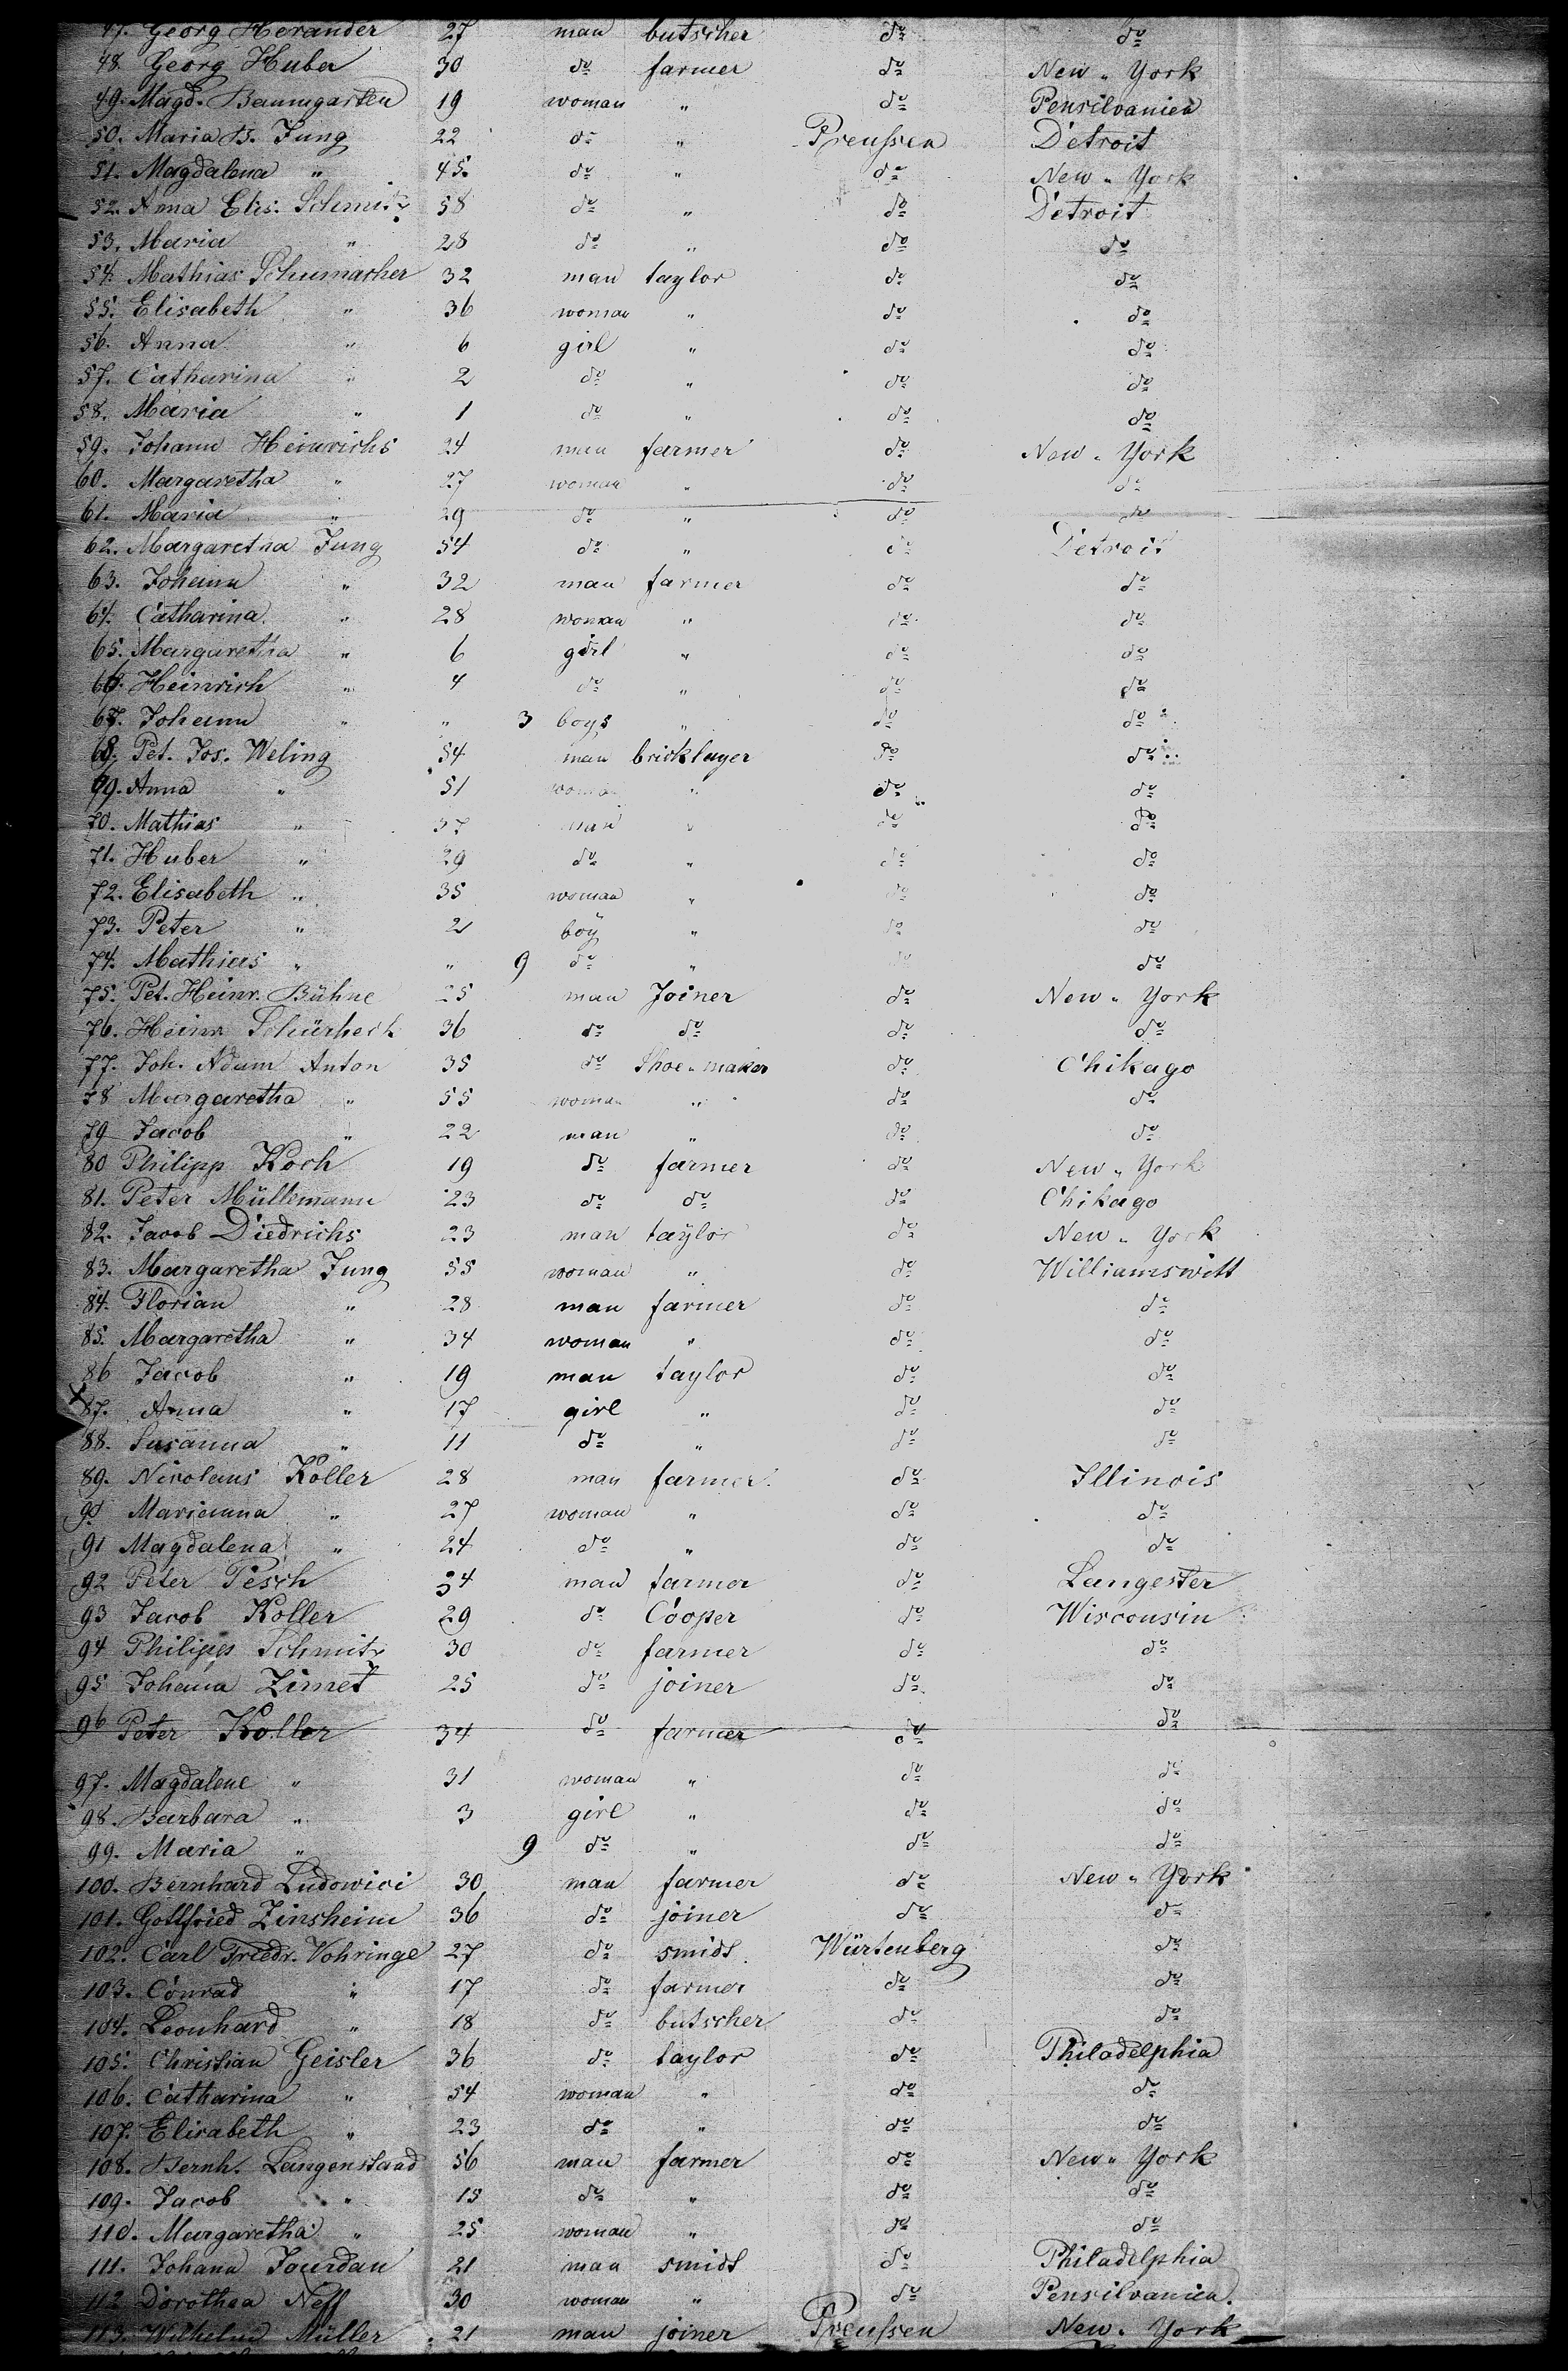 47. Georg Herander 27 man butscher do do
48. Georg Huber 30 do farmer do New York
49. Magd. Baumgarten 19 woman " do Pensilvanien
50. Maria B. Jung 22 do " Preußen Detroit
51. Magdalena " 45. do " do New York
52. Anna Elis. Schmitz 58 do " do Detroit
53. Maria " 28 do " do do
54. Mathias Schumacher 32 man taylor do do
55. Elisabeth " 36 woman " do do
56. Anna " 6 girl " do do
57. Catharina " 2 do " do do
58. Maria " 1 do " do do
59. Johann Heinrichs 24 man farmer do New York
60. Margaretha " 27 woman " do do
61. Maria " 29 do " do do
62. Margaretha Jung 54 do " do Detroit
63. Johann " 32 man farmer do do
64. Catharina " 28 woman " do do
65. Margaretha " 6 girl " do do
66. Heinrich " 4 do " do do
67. Johann " " 3 boys " do do
68. Pet. Jos. Weling 54 man bricklayer do do
69. Anna " 51 woman " do do
70. Mathias " 37 man " do do
71. Huber " 29 do " do do
72. Elisabeth " 35 woman " do do
73. Peter " 2 boy " do do
74. Mathias " " 9 do " do do
75. Pet. Heinr. Bühne 25 man Joiner do New York
76. Heinr. 36 do do do do
77. Joh. Adam Anton 35 do Shoe-maker do Chikago
78 Margaretha " 55 woman " do do
79 Jacob " 22 man " do do
80 Philipp Koch 19 do farmer do New York
81. Peter Müllemann 23 do do do Chikago
82. Jacob Diedrichs 23 man taylor do New York
83. Margaretha Jung 55 woman " do Williamswitt
84. Florian " 28 man farmer do do
85. Margaretha " 34 woman " do do
86 Jacob " 19 man taylor do do
87. Anna " 17 girl " do do
88. Susanna " 11 do " do do
89. Nicolaus Koller 28 man farmer do Illinois
90 Marianna " 27 woman " do do
91 Magdalena " 24 do " do do
92 Peter Pesch 34 man farmer do Langester
93 Jacob Koller 29 do Cooper do Wisconsin
94 Philipp Schmitz 30 do farmer do do
95 Johann Zimet 25 do joiner do do
96 Peter Koller 34 do farmer do do
97. Magdalene " 31 woman " do do
98. Barbara " 3 girl " do do
99. Maria " 9 do " do do
100. Bernhard Ludowici 30 man farmer do New York
101. Gottfried Zinsheim 36 do joiner do do
102. Carl Friedr. Vohringe 27 do smidt Würtenberg do
103. Conrad " 17 do farmer do do
104. Leonhard " 18 do butscher do do
105. Christian Geisler 36 do taylor do Philadelphia
106. Catharina " 54 woman " do do
107. Elisabeth " 23 do " do do
108. Bernh. Langenstand 56 man farmer do New York
109. Jacob " 15 do " do do
110. Margaretha " 25 woman " do do
111. Johann Jourdan 21 man smidt do Philadelphia
112 Dorothea Neff 30 woman " do Pensilvanien.
113. Wilhelm Müller 21 man joiner Preußen New York